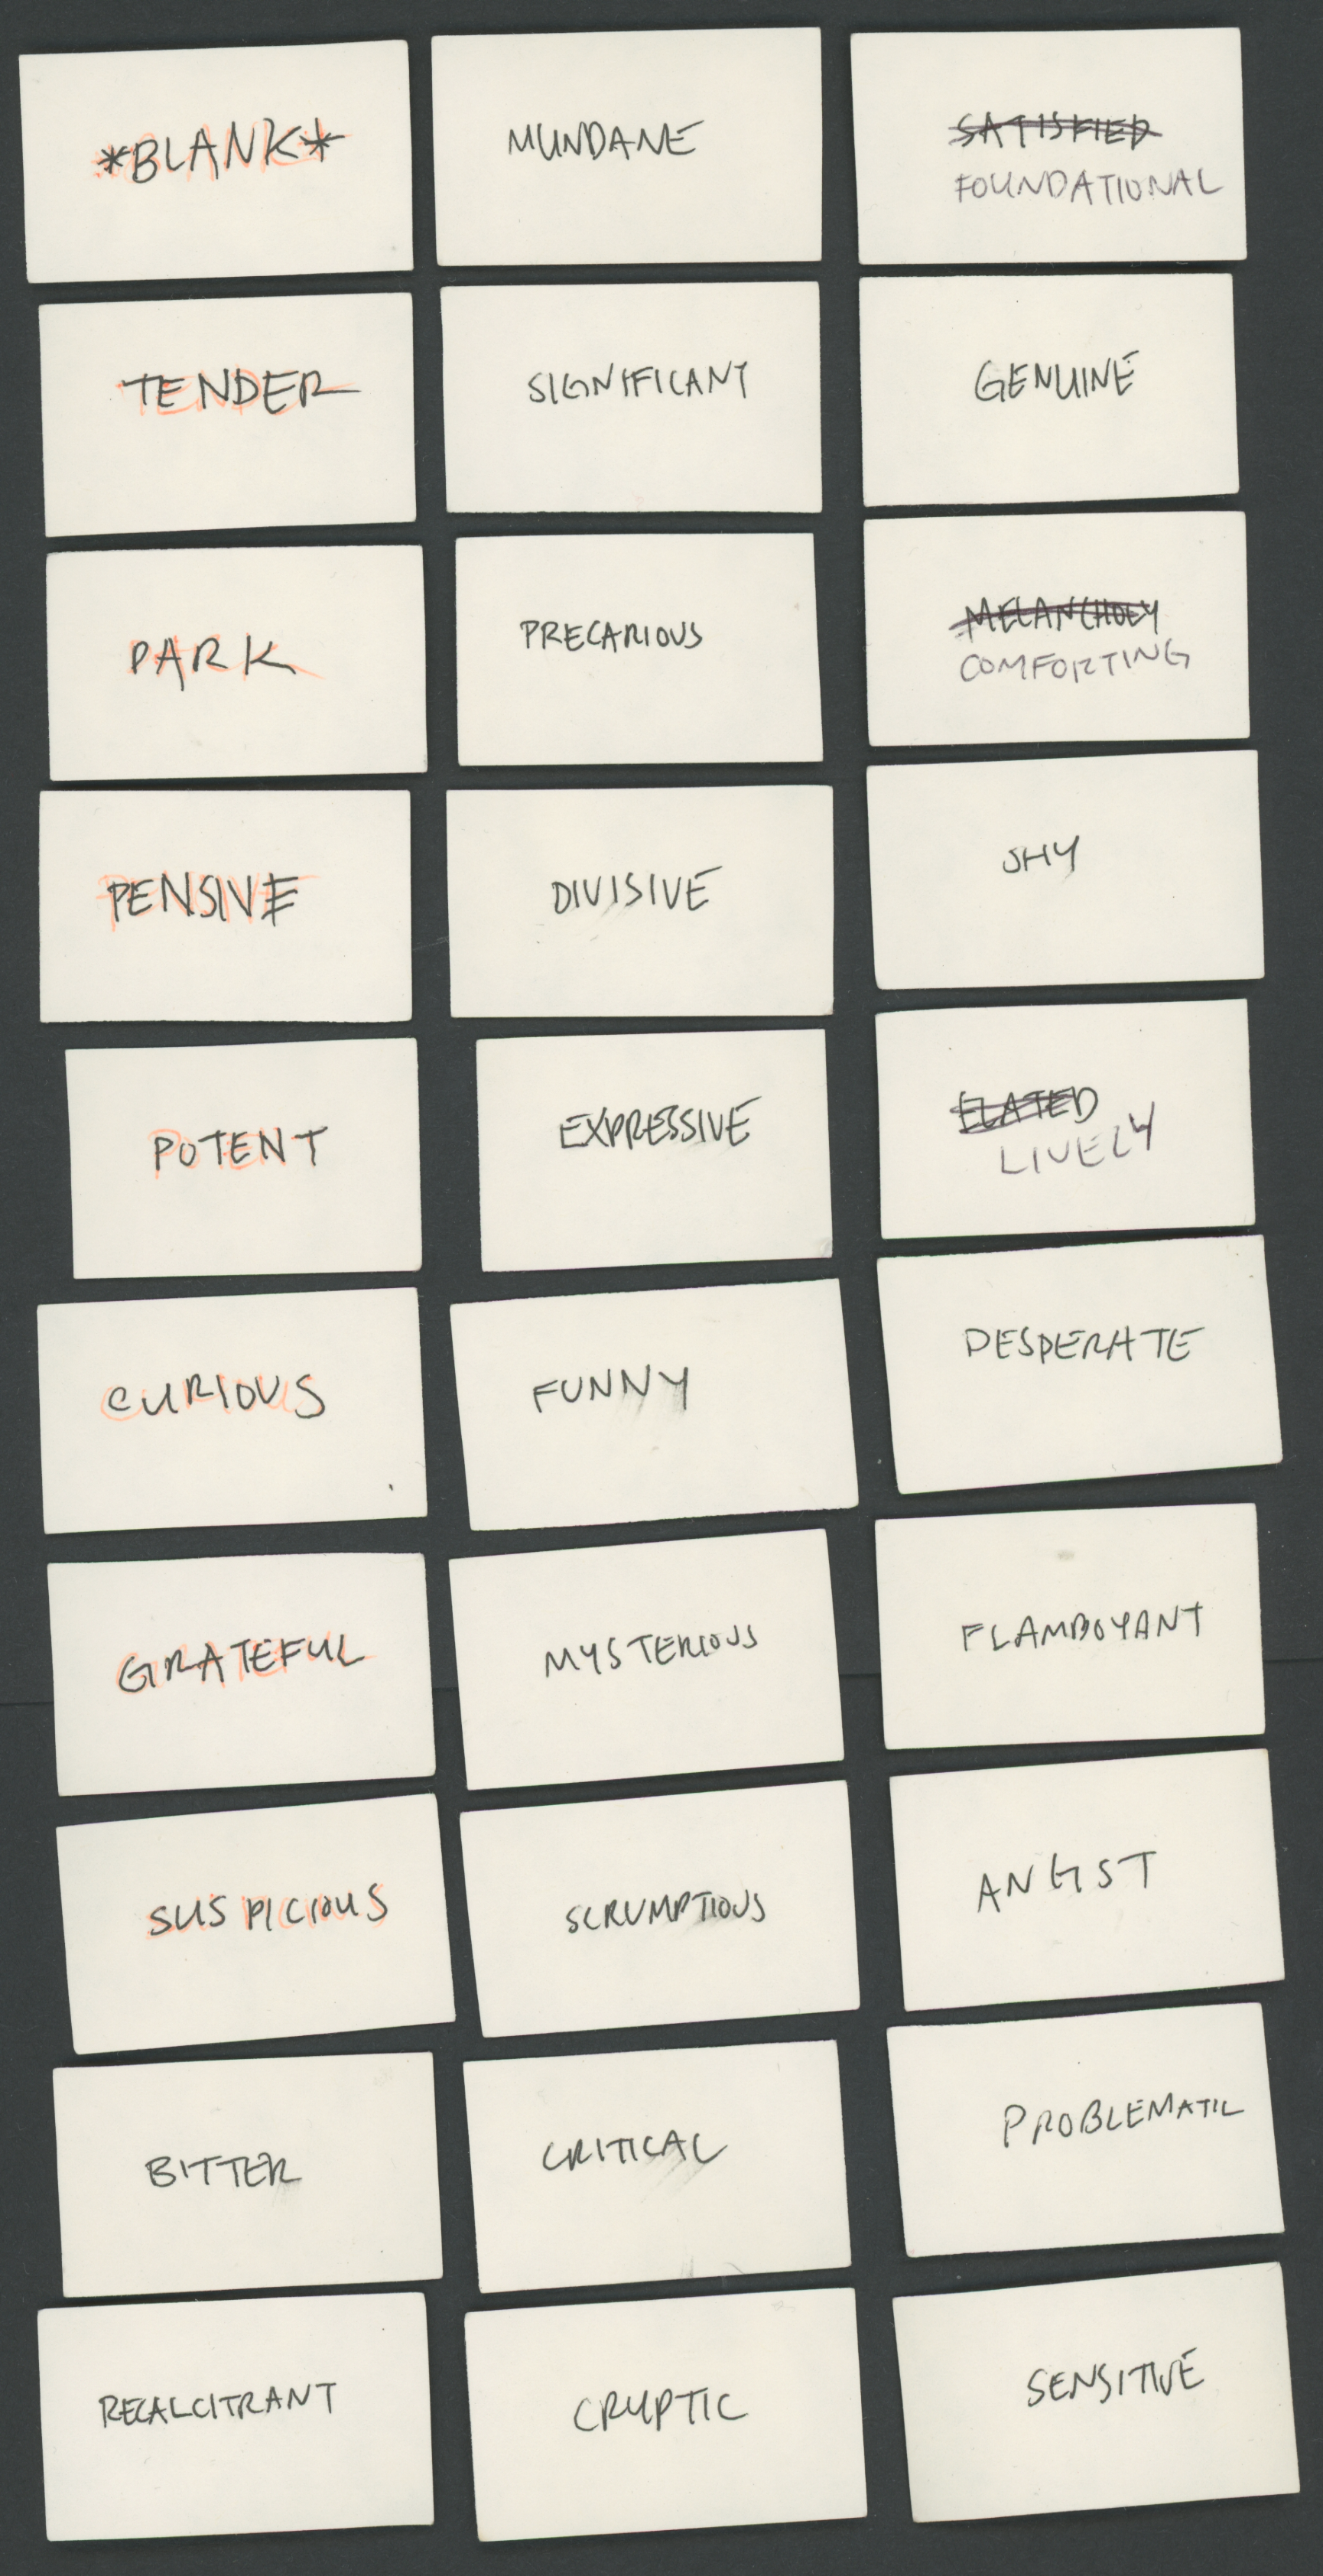 *BLANK*
TENDER
PARK
PENSIVE
POTENT
CURIOUS
GRATEFUL
SUSPICIOUS
BITTER
RECALCITRANT
MUNDANE
SIGNIFICANT
PRECARIOUS
DIVISIVE
EXPRESSIVE
FUNNY
MYSTERIOUS
SCRUMPTIOUS
CRITICAL
CRYPTIC
SATISFIED
FOUNDATIONAL
GENUINE
MELANCHOLY
COMFORTING
SHY
ELATED
LIVELY
DESPERATE
FLAMBOYANT
ANGST
PROBLEMATIC
SENSITIVE